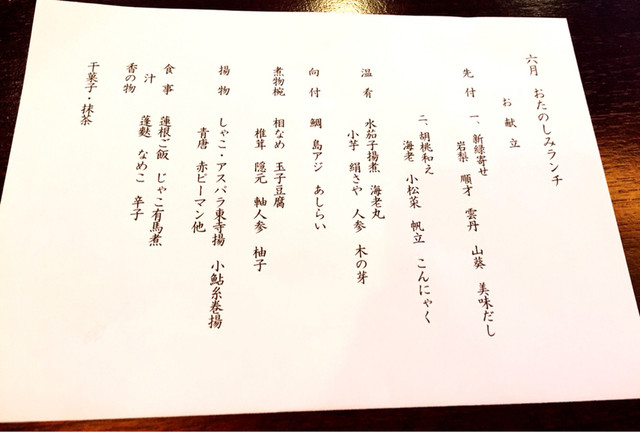 六月 おたのしみランチ
お献立
先付 一、新緑寄せ
岩梨 順才 雲丹 山葵 美味だし
二、胡桃和え
海老 小松菜 帆立 こんにゃく
温肴 水茄子揚煮 海老丸
小芋 絹さや 人参 木の芽
向付 鯛 島アジ あしらい
煮物椀 相なめ 玉子豆腐
椎茸 隠元 軸人参 柚子
揚物 しゃこ・アスパラ東寺揚 小鮎糸巻揚
青唐 赤ピーマン他
食事 蓮根ご飯 じゃこ有馬煮
汁 蓬麩 なめこ 辛子
香の物
干菓子・抹茶